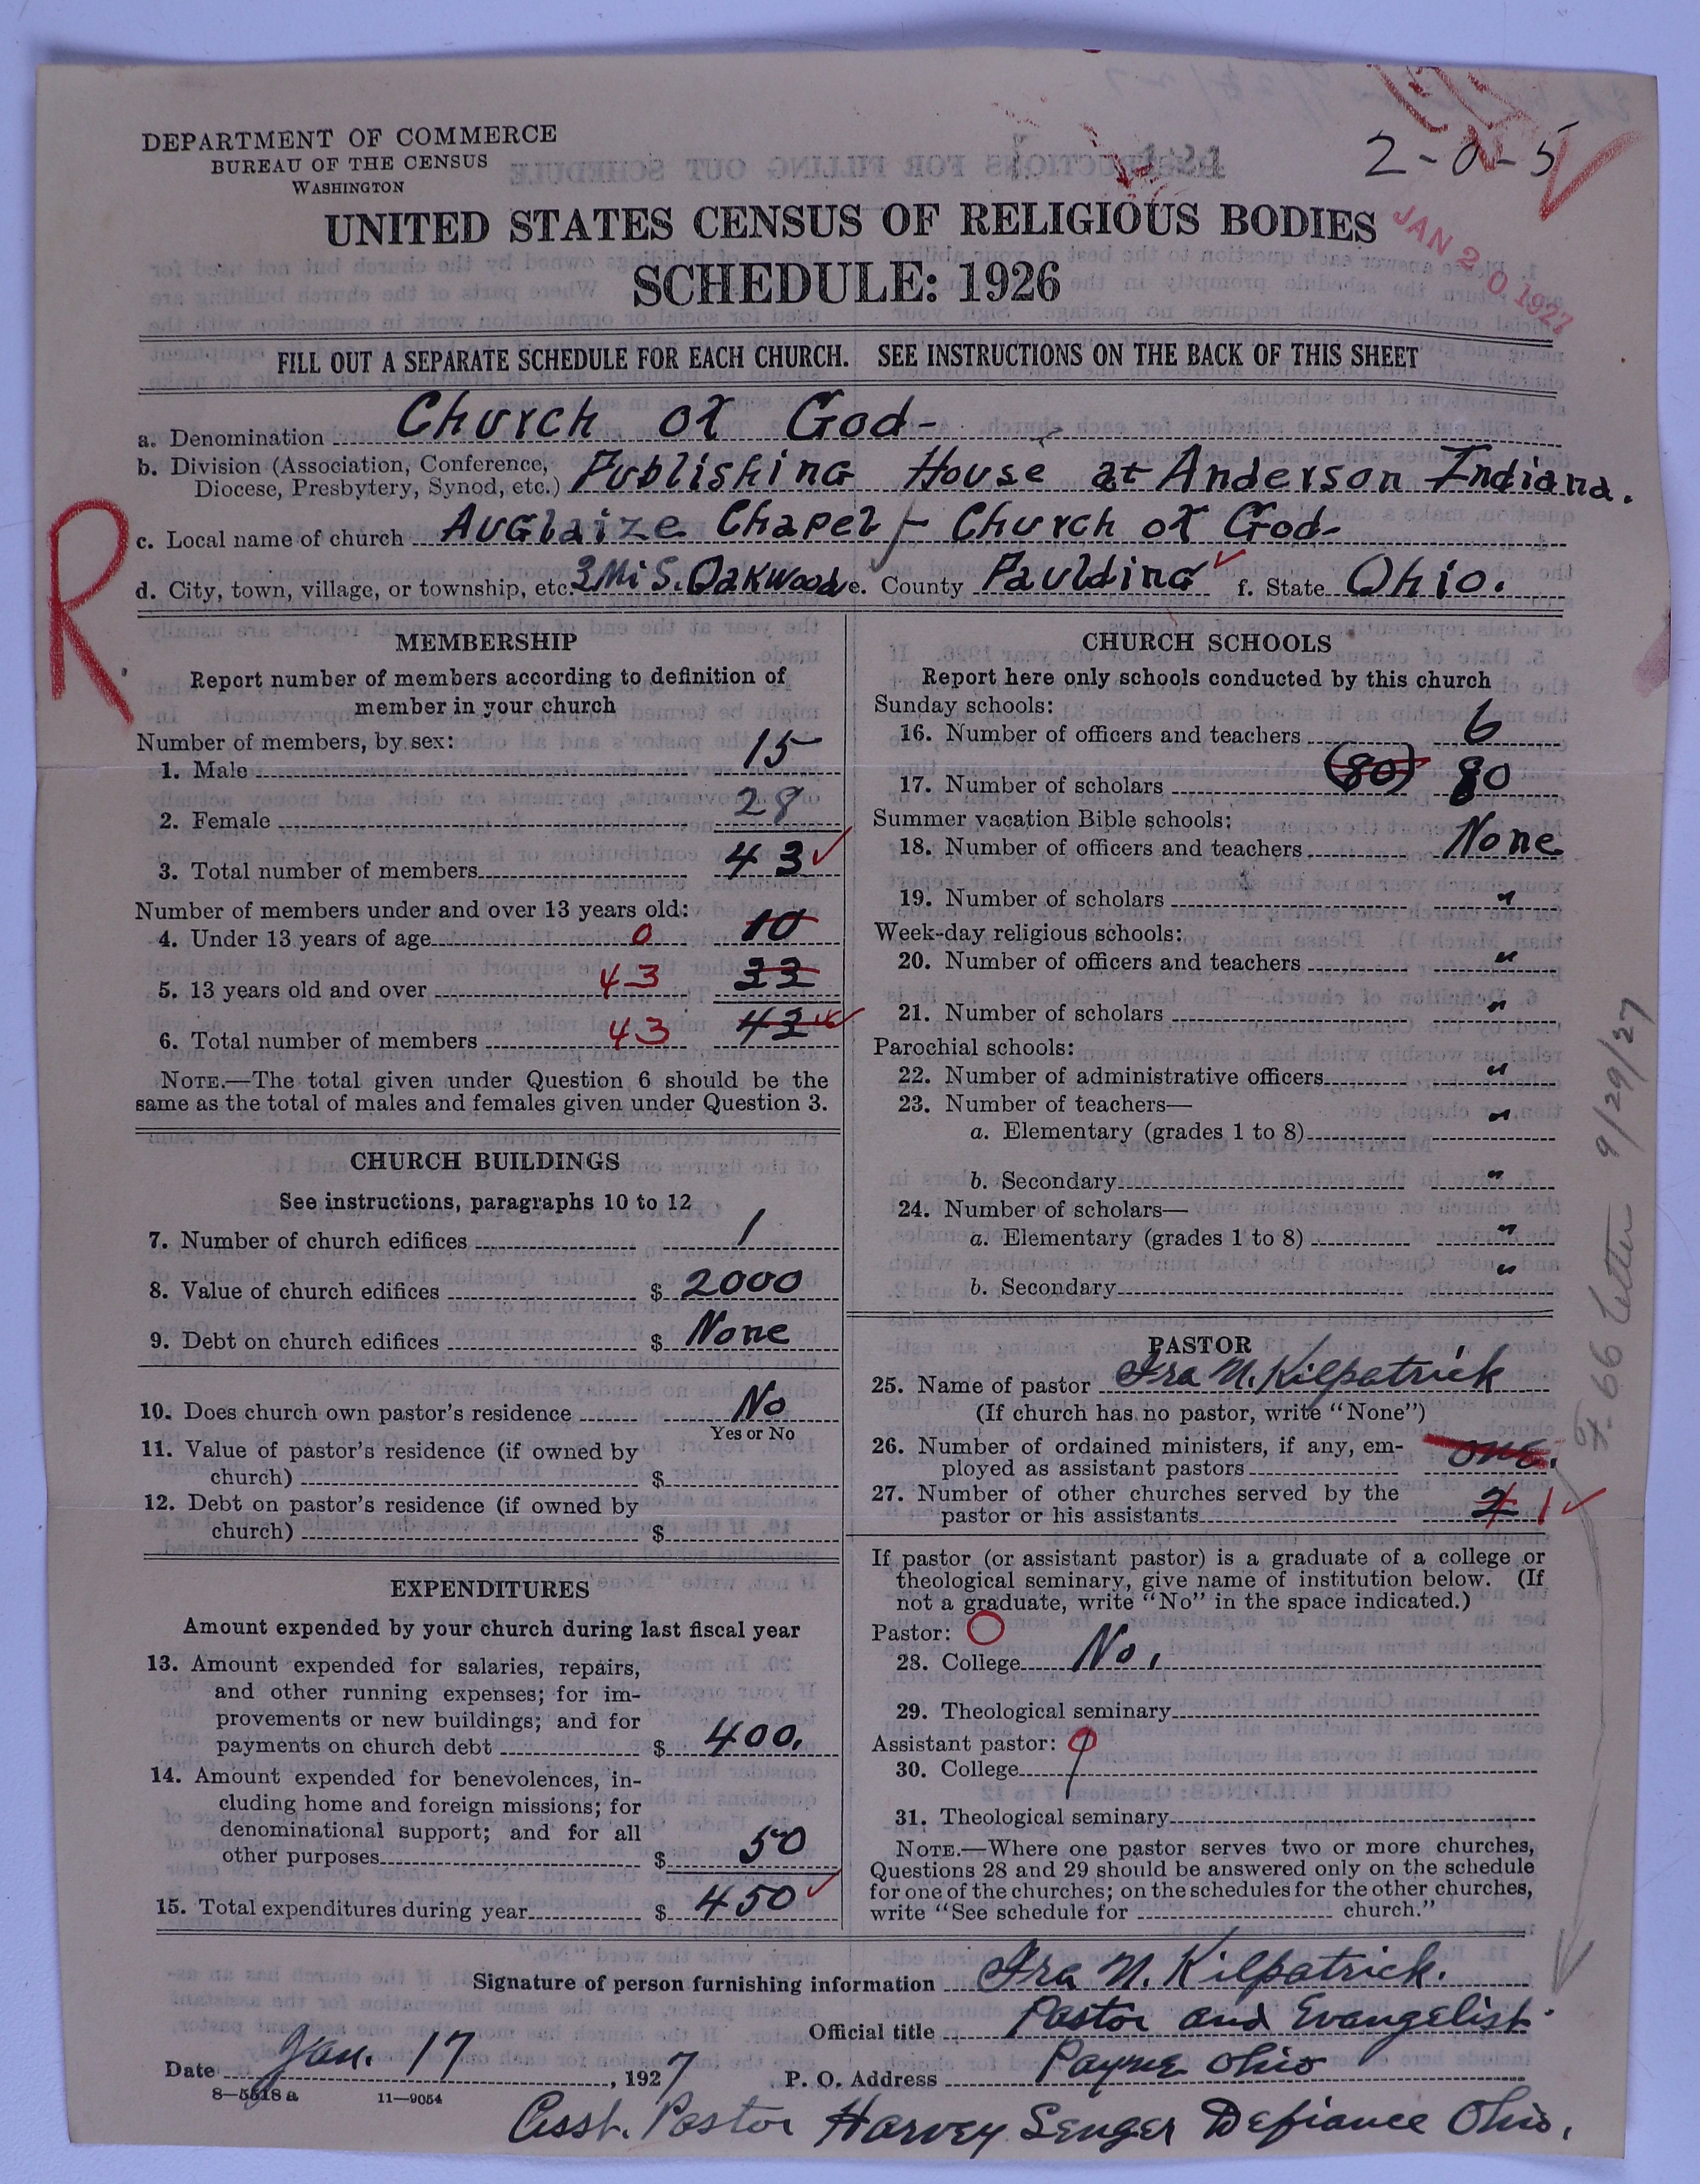 2-0-5
DEPARTMENT OF COMMERCE
BUREAU OF THE CENSUS
WASHINGTON
UNITED STATES CENSUS OF RELIGIOUS BODIES
JAN 20 1927
SCHEDULE: 1926
FILL OUT A SEPARATE SCHEDULE FOR EACH CHURCH. SEE INSTRUCTIONS ON THE BACK OF THIS SHEET
a. Denomination Church of God-
b. Division (Association, Conference,
Diocese, Presbytery, Synod, etc.) Publishing House at Anderson Indiana.
R
c. Local name of church Auglaize Chapel - Church of God-
d. City, town, village, or township, etc. 3 Mi S. Oakwood e. County Paulding f. State Ohio.
MEMBERSHIP
Report number of members according to definition of
member in your church
Number of members, by sex:
1. Male 15
2. Female 28
3. Total number of members 43
Number of members under and over 13 years old:
4. Under 13 years of age 0 10
5. 13 years old and over 43 33
6. Total number of members 43 43
NOTE.—The total given under Question 6 should be the
same as the total of males and females given under Question 3.
CHURCH BUILDINGS
See instructions, paragraphs 10 to 12
7. Number of church edifices 1
8. Value of church edifices $ 2000
9. Debt on church edifices $ None
10. Does church own pastor's residence No
Yes or No
11. Value of pastor's residence (if owned by
church) $
12. Debt on pastor's residence (if owned by
church) $
EXPENDITURES
Amount expended by your church during last fiscal year
13. Amount expended for salaries, repairs,
and other running expenses; for im-
provements or new buildings; and for
payments on church debt $ 400.
14. Amount expended for benevolences, in-
cluding home and foreign missions; for
denominational support; and for all
other purposes $ 50
15. Total expenditures during year $ 450
CHURCH SCHOOLS
Report here only schools conducted by this church
Sunday schools:
16. Number of officers and teachers 6
17. Number of scholars (80) 80
Summer vacation Bible schools:
18. Number of officers and teachers None
19. Number of scholars "
Week-day religious schools:
20. Number of officers and teachers "
21. Number of scholars "
Parochial schools:
22. Number of administrative officers "
23. Number of teachers— "
a. Elementary (grades 1 to 8)
b. Secondary "
24. Number of scholars—
a. Elementary (grades 1 to 8) "
b. Secondary "
PASTOR
25. Name of pastor Ira N. Kilpatrick
(If church has no pastor, write "None")
26. Number of ordained ministers, if any, em-
ployed as assistant pastors one.
27. Number of other churches served by the
pastor or his assistants 2 1
If pastor (or assistant pastor) is a graduate of a college or
theological seminary, give name of institution below. (If
not a graduate, write "No" in the space indicated.)
Pastor: O
28. College No.
29. Theological seminary
Assistant pastor: O
30. College
31. Theological seminary
NOTE.—Where one pastor serves two or more churches,
Questions 28 and 29 should be answered only on the schedule
for one of the churches; on the schedules for the other churches,
write "See schedule for church."
66 Letter 9/29/27
Signature of person furnishing information Ira N. Kilpatrick.
Official title Pastor and Evangelist.
Date Jan. 17, 1927 P. O. Address Payne Ohio
8—5518 a 11—9054
Asst. Pastor Harvey Senger Defiance Ohio.